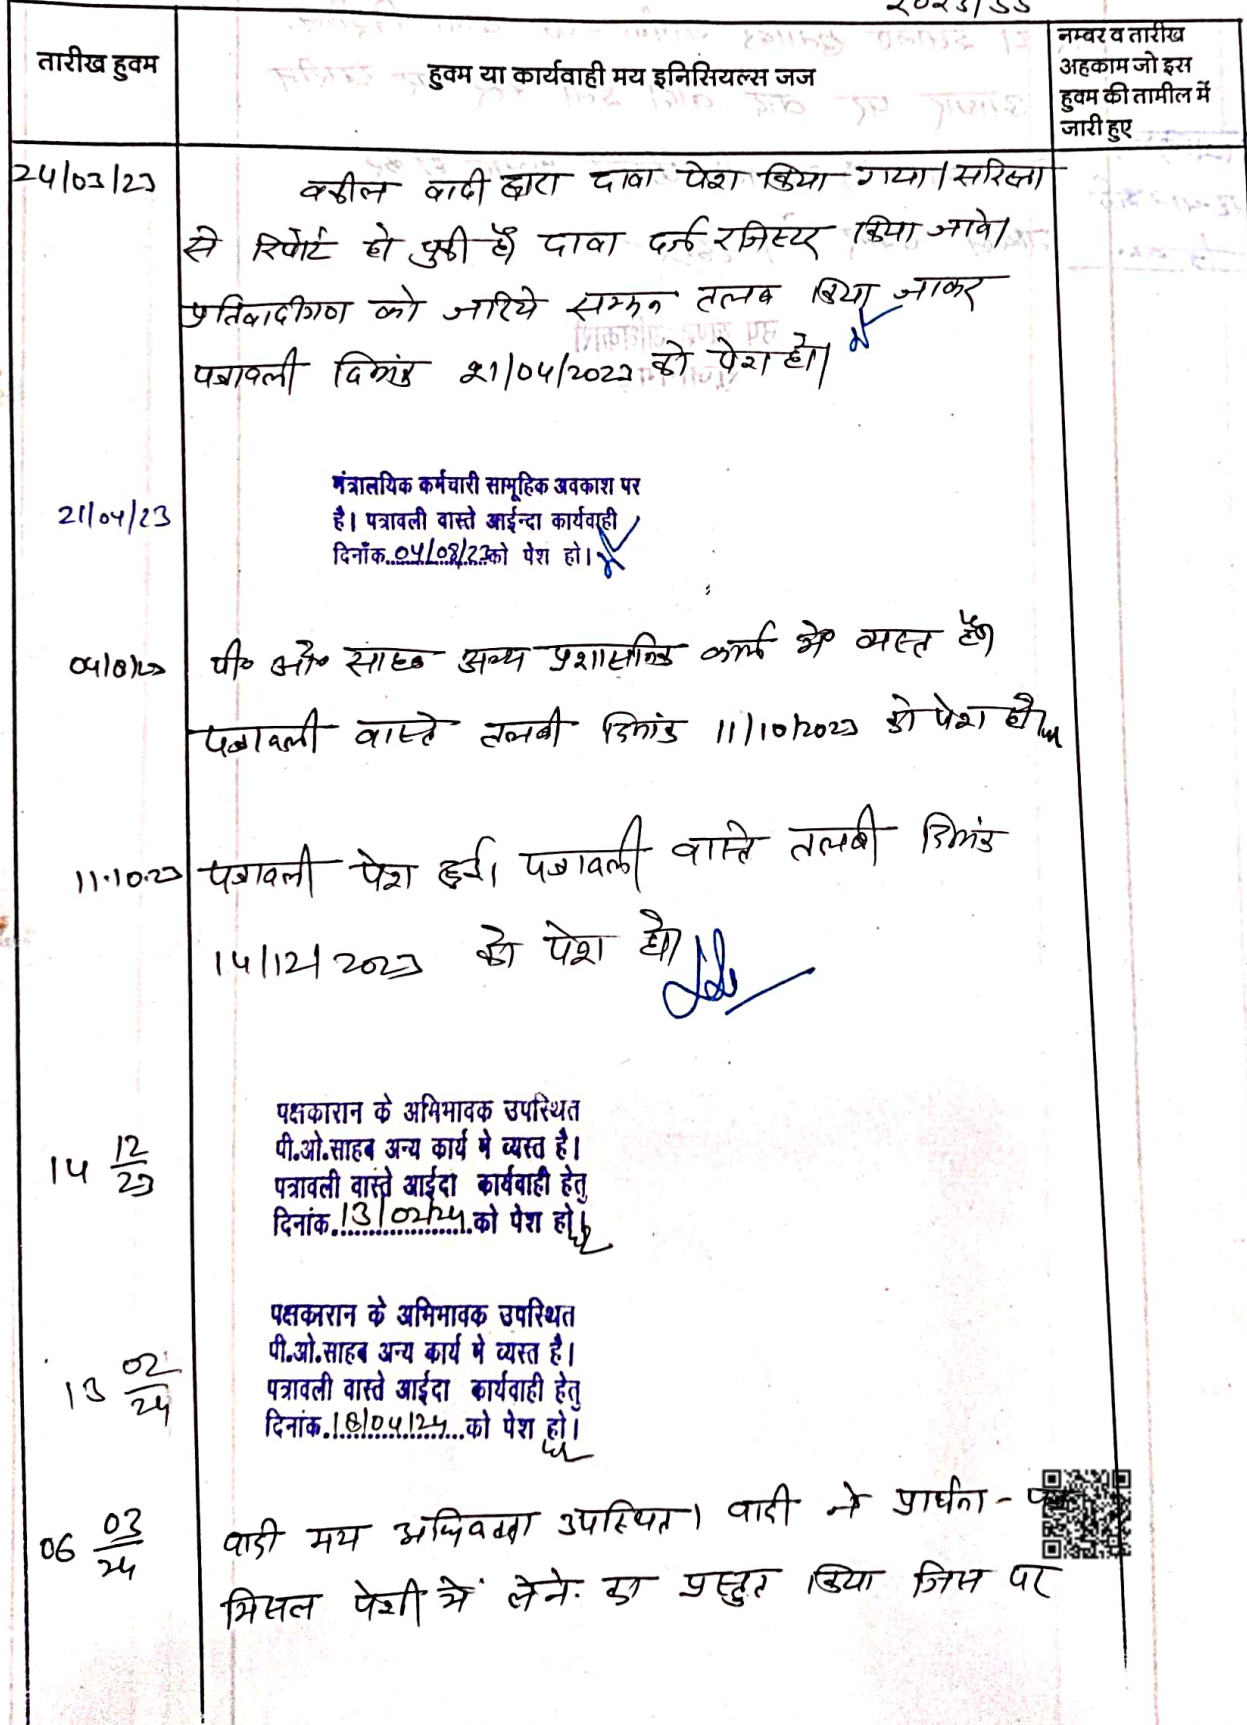 2023/55
तारीख हुक्म
हुक्म या कार्यवाही मय इनिसियल्स जज
नम्बर व तारीख
अहकाम जो इस
हुक्म की तामील में
जारी हुए
24/03/23 वकील वादी द्वारा दावा पेश किया गया। सरिस्ता
से रिपोर्ट हो चुकी है। दावा दर्ज रजिस्टर किया जावे।
प्रतिवादीगण को जरिये सम्मन तलब किया जाकर
पत्रावली दिनांक 21/04/2023 को पेश हो।
मंत्रालयिक कर्मचारी सामूहिक अवकाश पर
21/04/23 है। पत्रावली वास्ते आईन्दा कार्यवाही
दिनाँक 04/08/23 को पेश हो।
04/8/23 पी० ओ० साहब अन्य प्रशासनिक कार्य मे व्यस्त है।
पत्रावली वास्ते तलबी दिनांक 11/10/2023 को पेश हो।
11.10.23 पत्रावली पेश हुई। पत्रावली वास्ते तलबी दिनांक
14/12/2023 को पेश हो।
पक्षकारान के अभिभावक उपस्थित
14 12/23 पी.ओ.साहब अन्य कार्य मे व्यस्त है।
पत्रावली वास्ते आईदा कार्यवाही हेतु
दिनांक 13/02/24 को पेश हो।
पक्षकारान के अभिभावक उपस्थित
पी.ओ.साहब अन्य कार्य मे व्यस्त है।
13 02/24 पत्रावली वास्ते आईदा कार्यवाही हेतु
दिनांक 18/04/24 को पेश हो।
06 03/24 वादी मय अधिवक्ता उपस्थित। वादी ने प्रार्थना-
मिसल पेशी में लेने का प्रस्तुत किया जिस पर